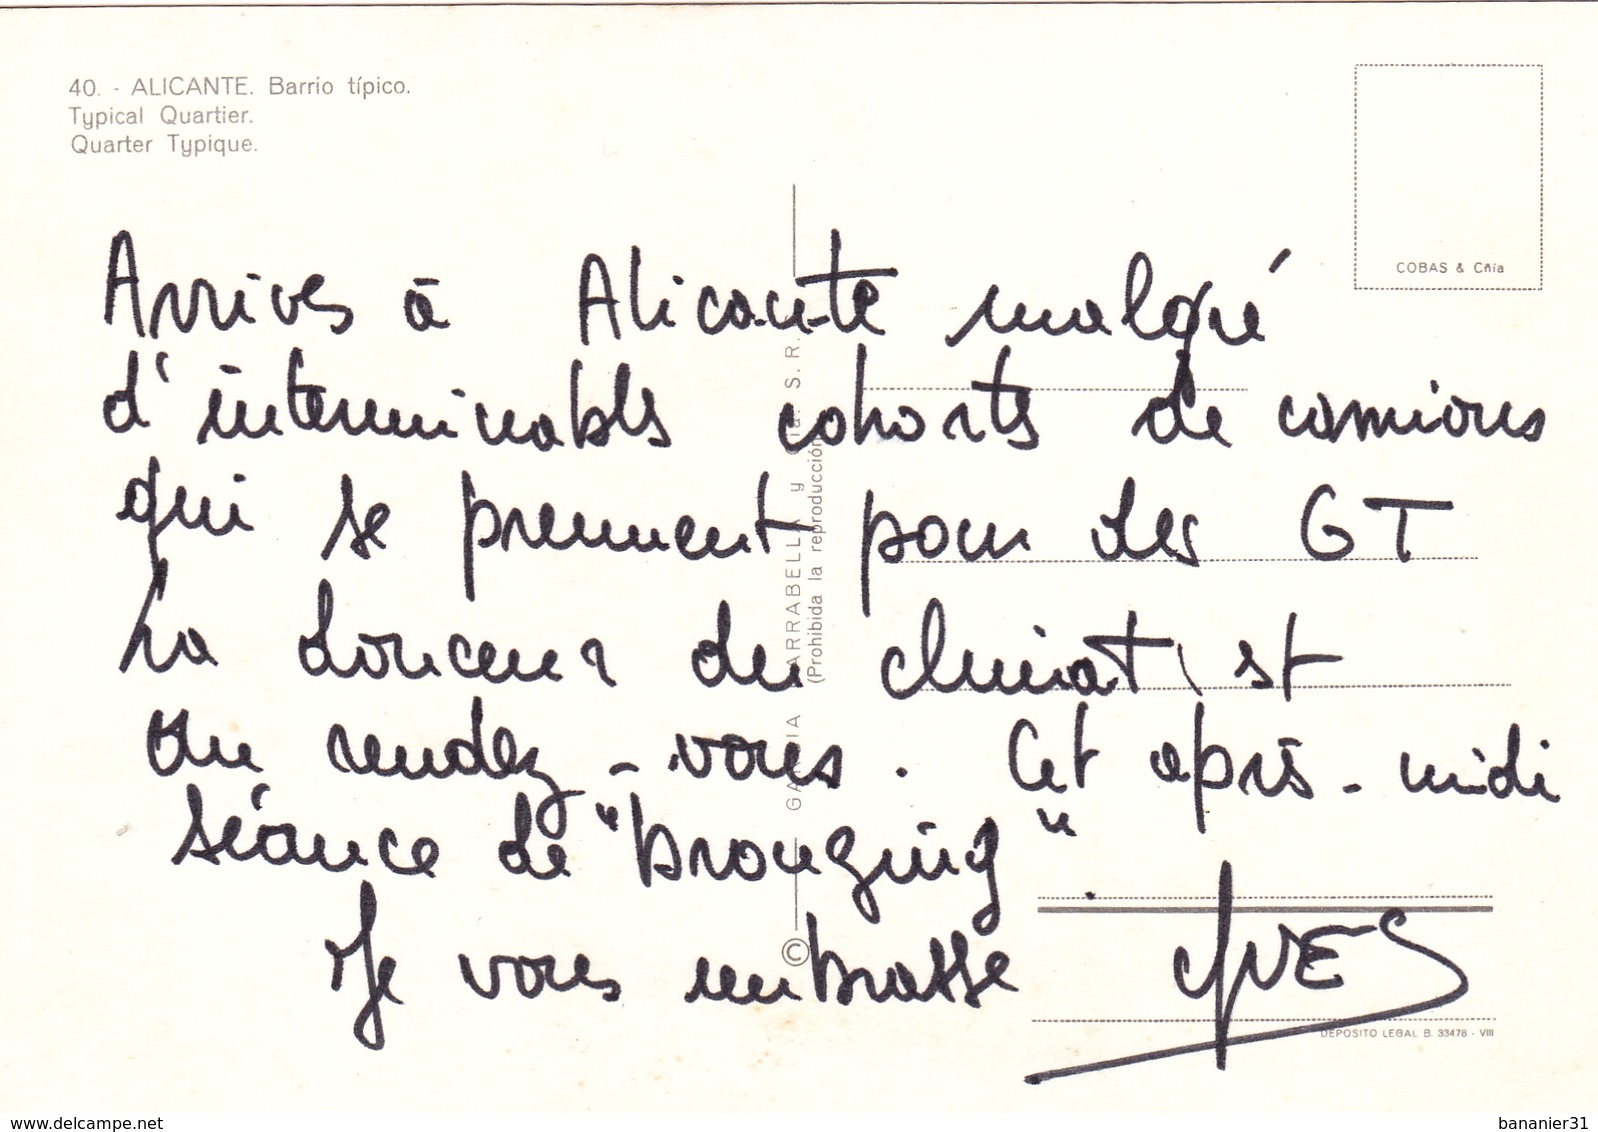 40. - ALICANTE. Barrio típico.
Typical Quartier.
Quarter Typique.
COBAS & Cñía
Arrives à Alicante malgré
d'interminables cohortes de camions
qui se prennent pour des GT
La douceur du climat est
au rendez-vous. Cet après-midi
séance de "bronzing".
Je vous embrasse YVES
© GARCIA GARRABELLA y Cía. S. R.
(Prohibida la reproducción
DEPOSITO LEGAL B. 33478 - VIII
delcampe.net
bananier31